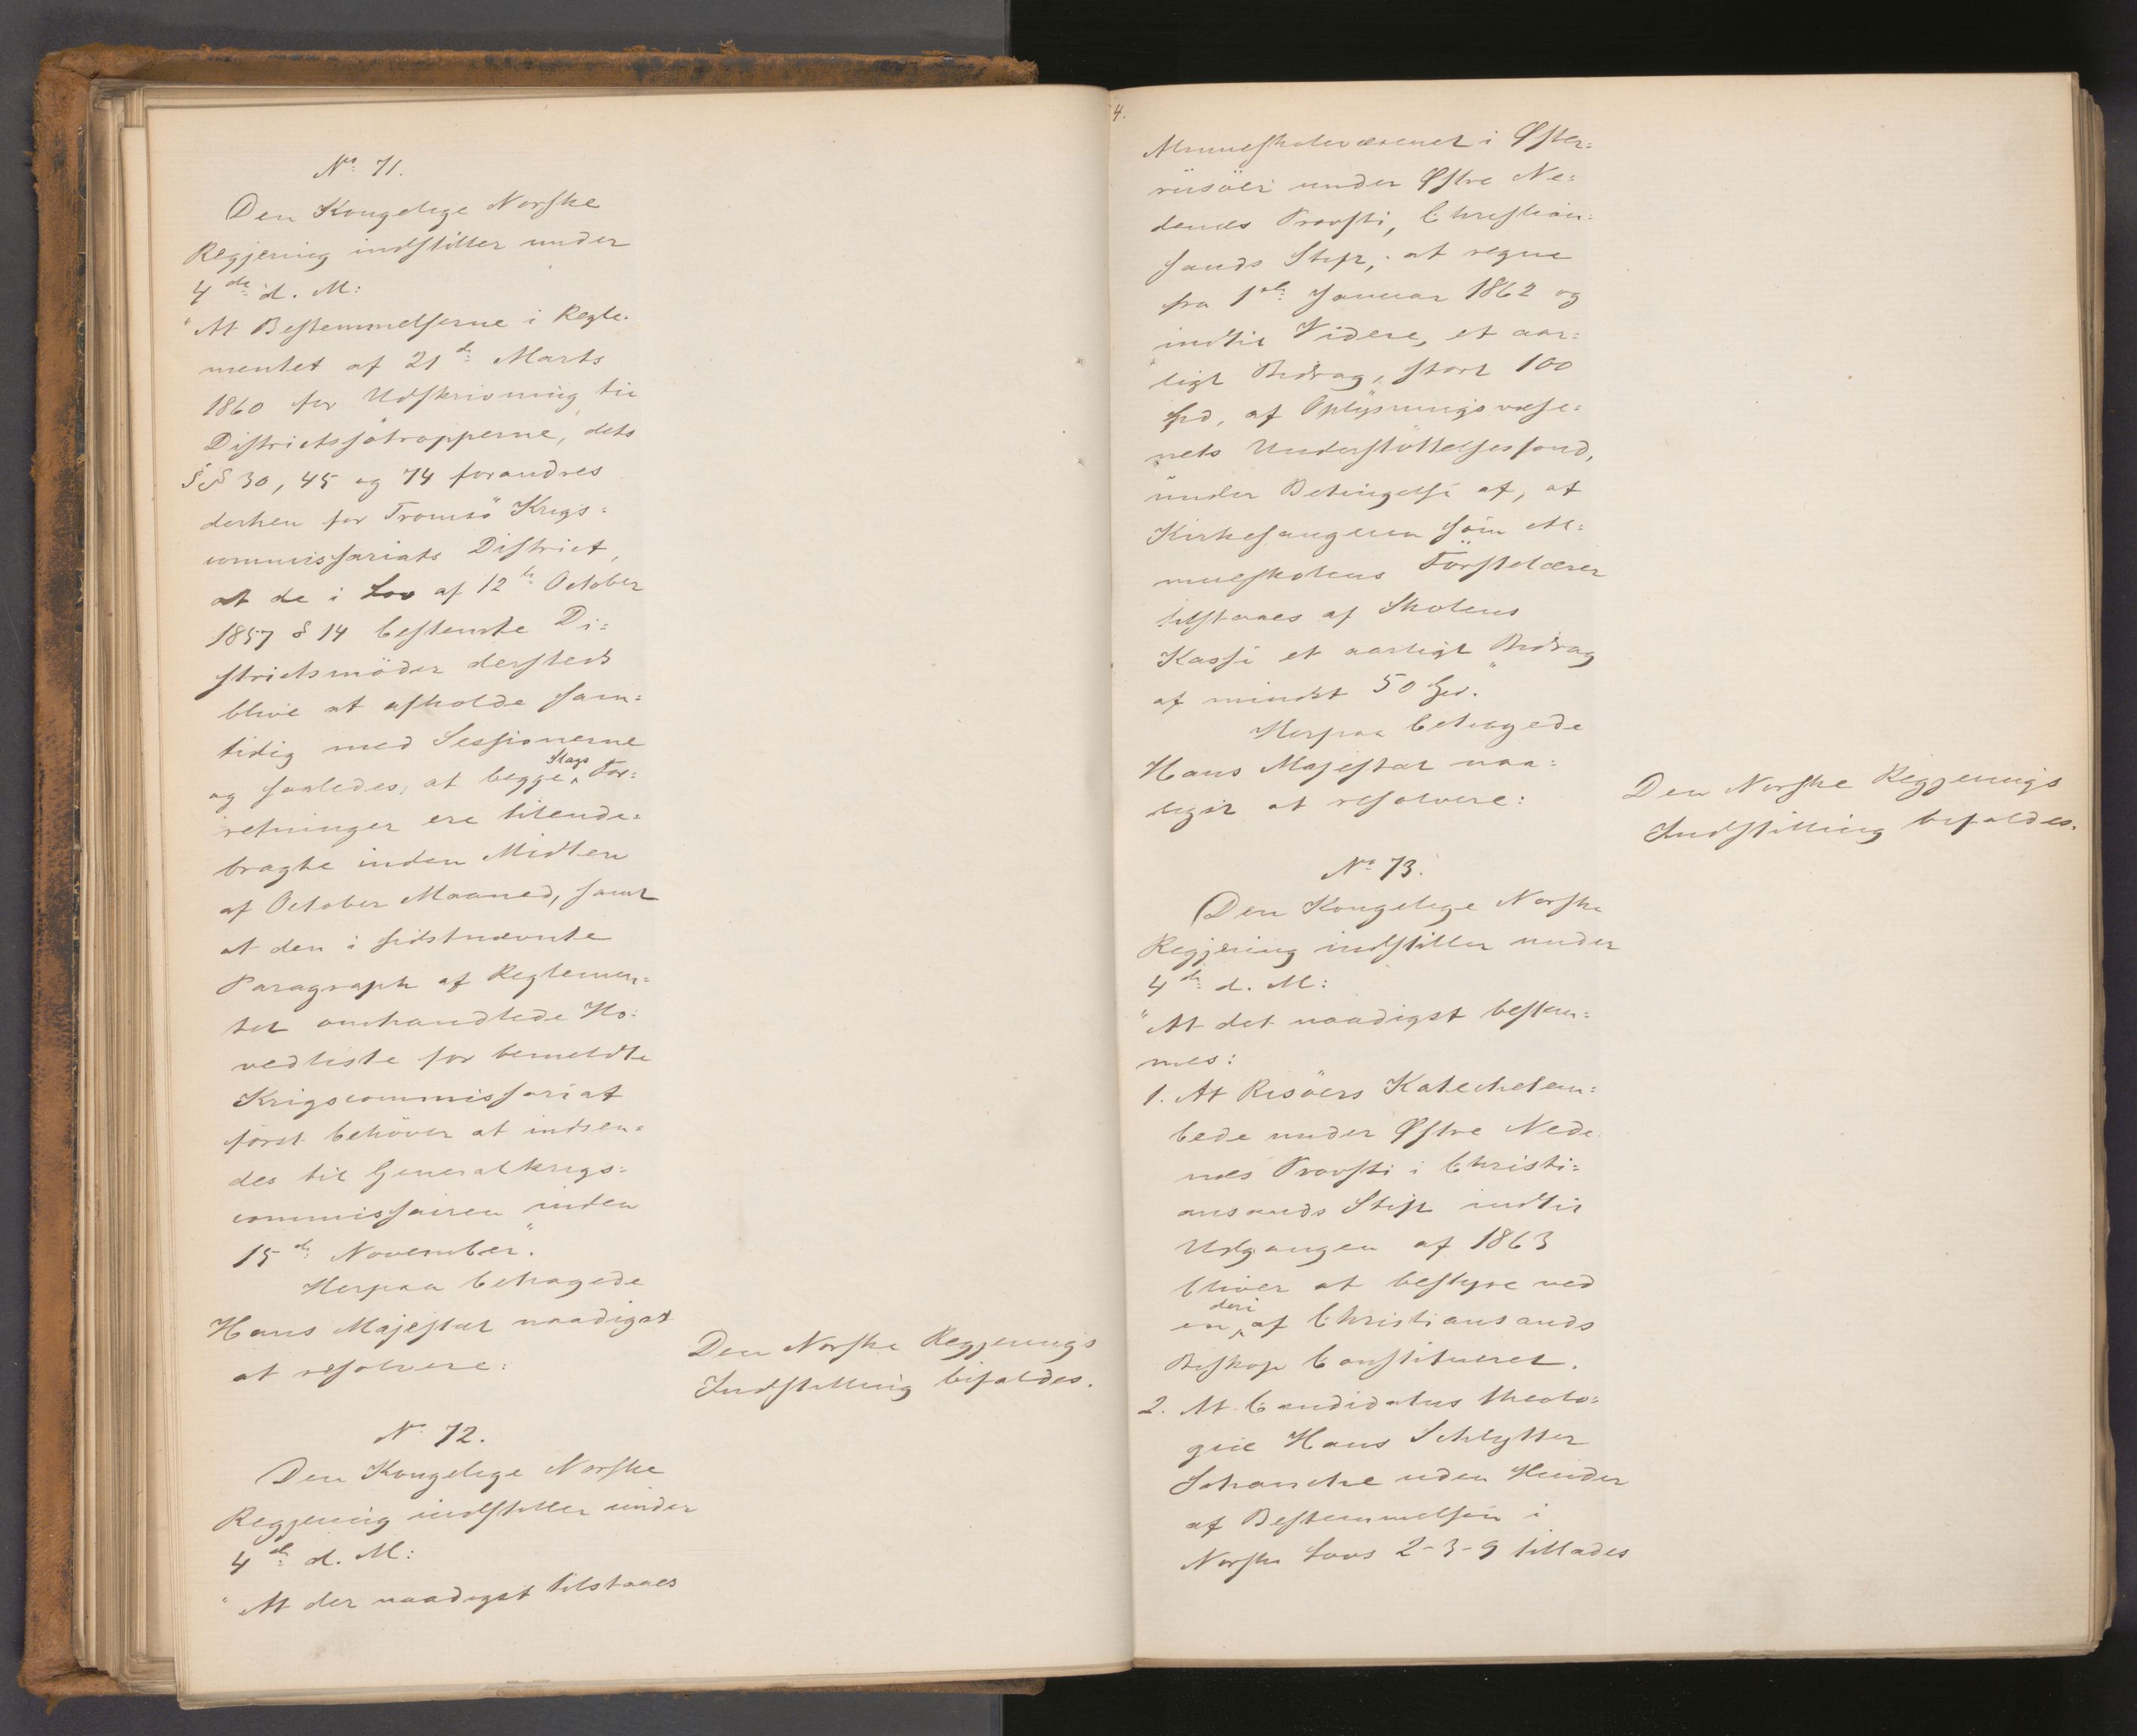 No 71.
Den Kongelige Norske
Regjering indstiller under
4de d. M:
"At Bestemmelserne i Regle-
mentet af 21de Marts
1860 for Udskrivning til
Districtssötropperne, dets
§§ 30, 45 og 74 forandres
derhen for Tromsö Krigs=
commissariats District,
at de i Lov af 12te October
1857 § 14 bestemte Di=
strictsmöder dersteds
blive at afholde sam=
tidig med Sessionerne
og saaledes, at begge Slags For=
retninger ere tilende=
bragte inden Midten
af October Maaned, samt
at den i sidstnævnte
Paragraph af Reglemen=
tet omhandlede Ho=
vedliste for bemeldte
Krigscommissariat
först behöver at indsen=
des til Generalkrigs=
commissairen inden
15de November".
Herpaa behagede
Hans Majestæt naadigst
at resolvere:
Den Norske Regjerings
Indstilling bifaldes.
No 72.
Den Kongelige Norske
Regjering indstiller under
4de d. M:
"At der naadigst tilstaaes
4.
Almueskolevæsenet i Øster=
riisöer under Østre Ne=
denæs Provsti, Christian=
sands Stift, at regne
fra 1ste Januar 1862 og
indtil Videre, et aar=
ligt Bidrag, stort 100
Spd, af Oplysningsvæse=
nets Understöttelsesfond,
under Betingelse af, at
Kirkesangeren som Al=
mueskolens Förstelærer
tilstaaes af Skolens
Kasse et aarligt Bidrag
af mindst 50 Spd."
Herpaa behagede
Hans Majestæt naa=
digst at resolvere:
Den Norske Regjerings
Indstilling bifaldes.
No 73.
Den Kongelige Norske
Regjering indstiller under
4de d. M:
"At det naadigst bestem=
mes:
1. At Risöers Katechetem=
bede under Østre Nede
næs Provsti i Christi=
ansands Stift indtil
Udgangen af 1863
bliver at bestyre ved
en deri af Christiansands
Biskop Constitueret.
2. At Candidatus theolo=
giæ Hans Schlytter
Schanche uden Hinder
af Bestemmelsen i
Norske Lovs 2-3-9 tillades